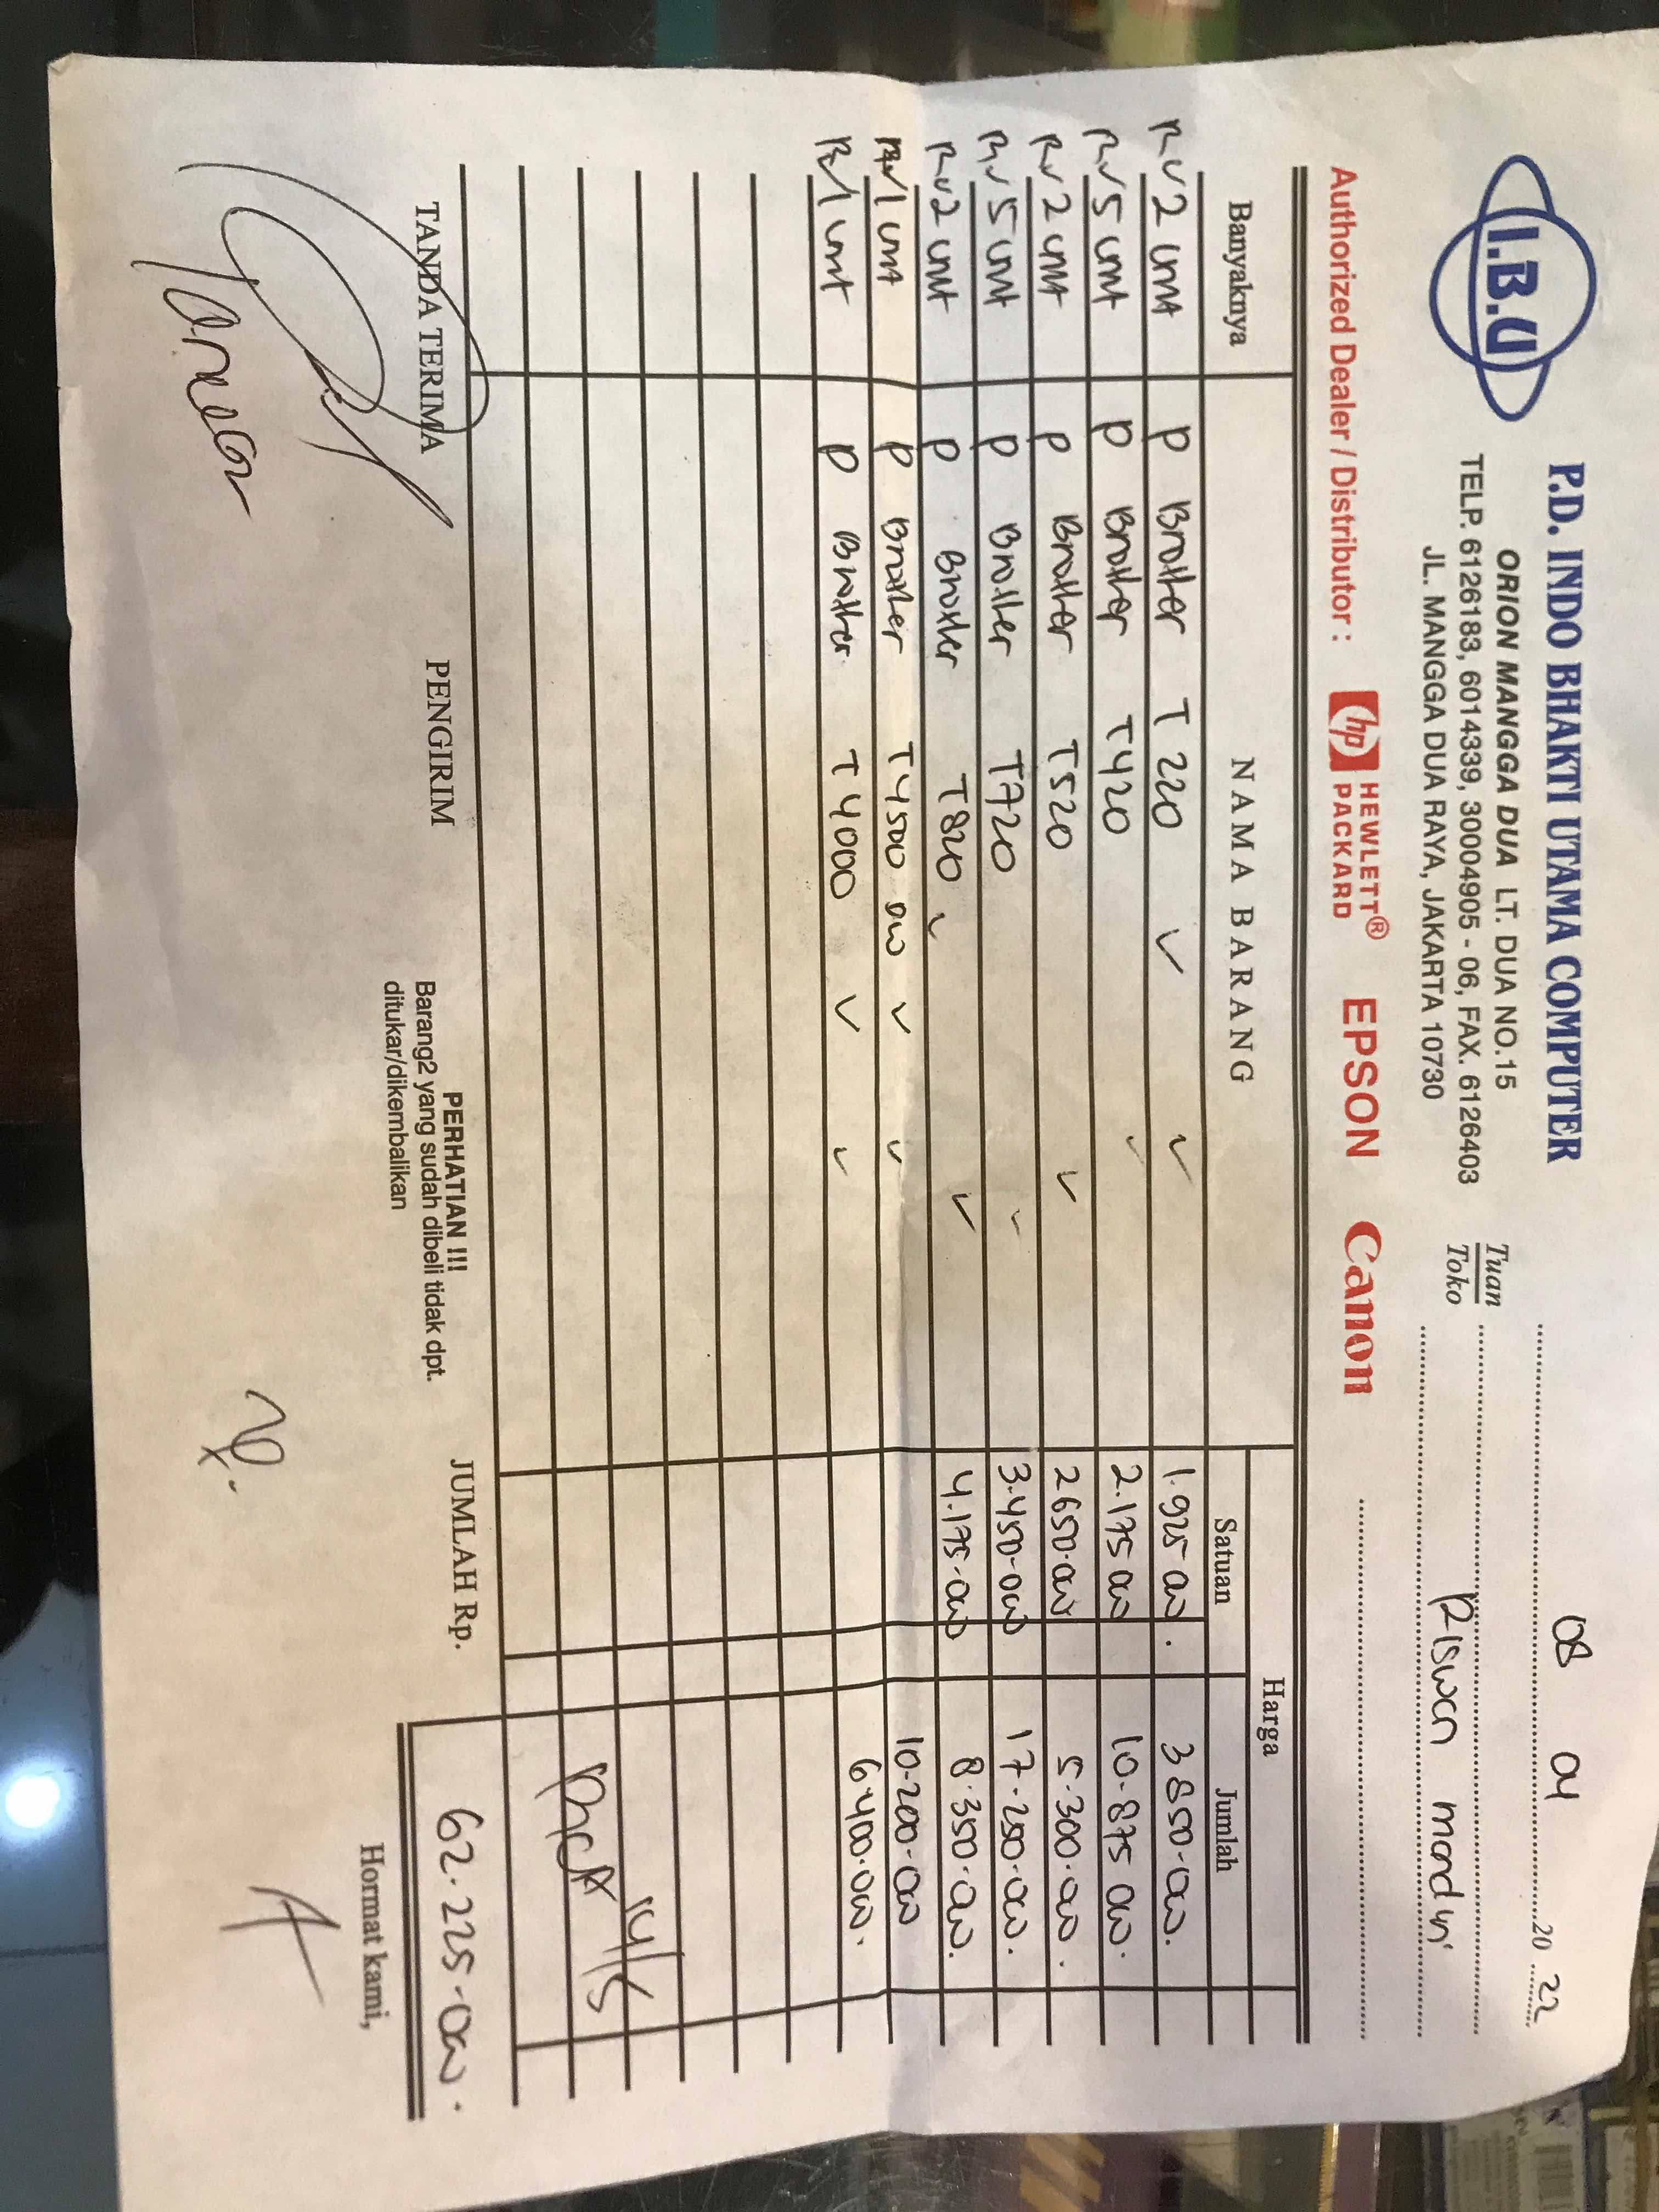 I.B.U
P.D. INDO BHAKTI UTAMA COMPUTER
ORION MANGGA DUA LT. DUA NO.15
TELP. 6126183, 6014339, 30004905 - 06, FAX. 6126403
JL. MANGGA DUA RAYA, JAKARTA 10730
08 04 20 22
Tuan
Toko
mandiri
Authorized Dealer / Distributor : hp HEWLETT® PACKARD EPSON Canon
Banyaknya NAMA BARANG Harga
Satuan Jumlah
2 unit P Brother T 220 1.925.000 3850.000.
5 unit P Brother T420 2.175.000 10.875.000.
2 unit P Brother T520 2650.000 5.300.000.
5 unit P Brother T720 3.450.000 17.250.000.
2 unit P Brother T820 4.175.000 8.350.000.
1 unit P Brother T4500 DW 10.200.000
1 unit P Brother T4000 6.400.000.
14/5
TANDA TERIMA PENGIRIM
PERHATIAN !!!
Barang2 yang sudah dibeli tidak dpt.
ditukar/dikembalikan
JUMLAH Rp. 62.225.000.
Hormat kami,